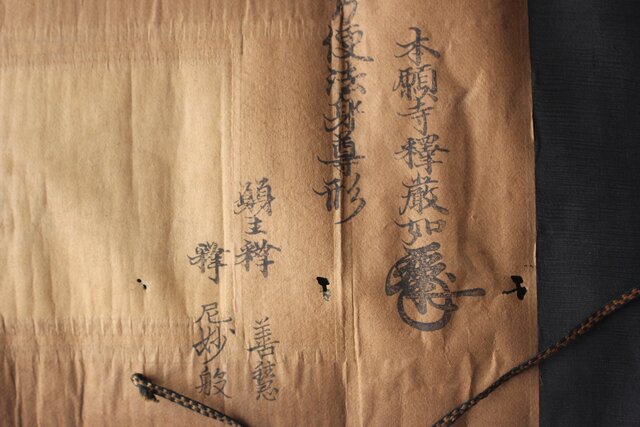 本願寺釋厳如
方便法身尊形
願主釋 善慧
釋尼妙般